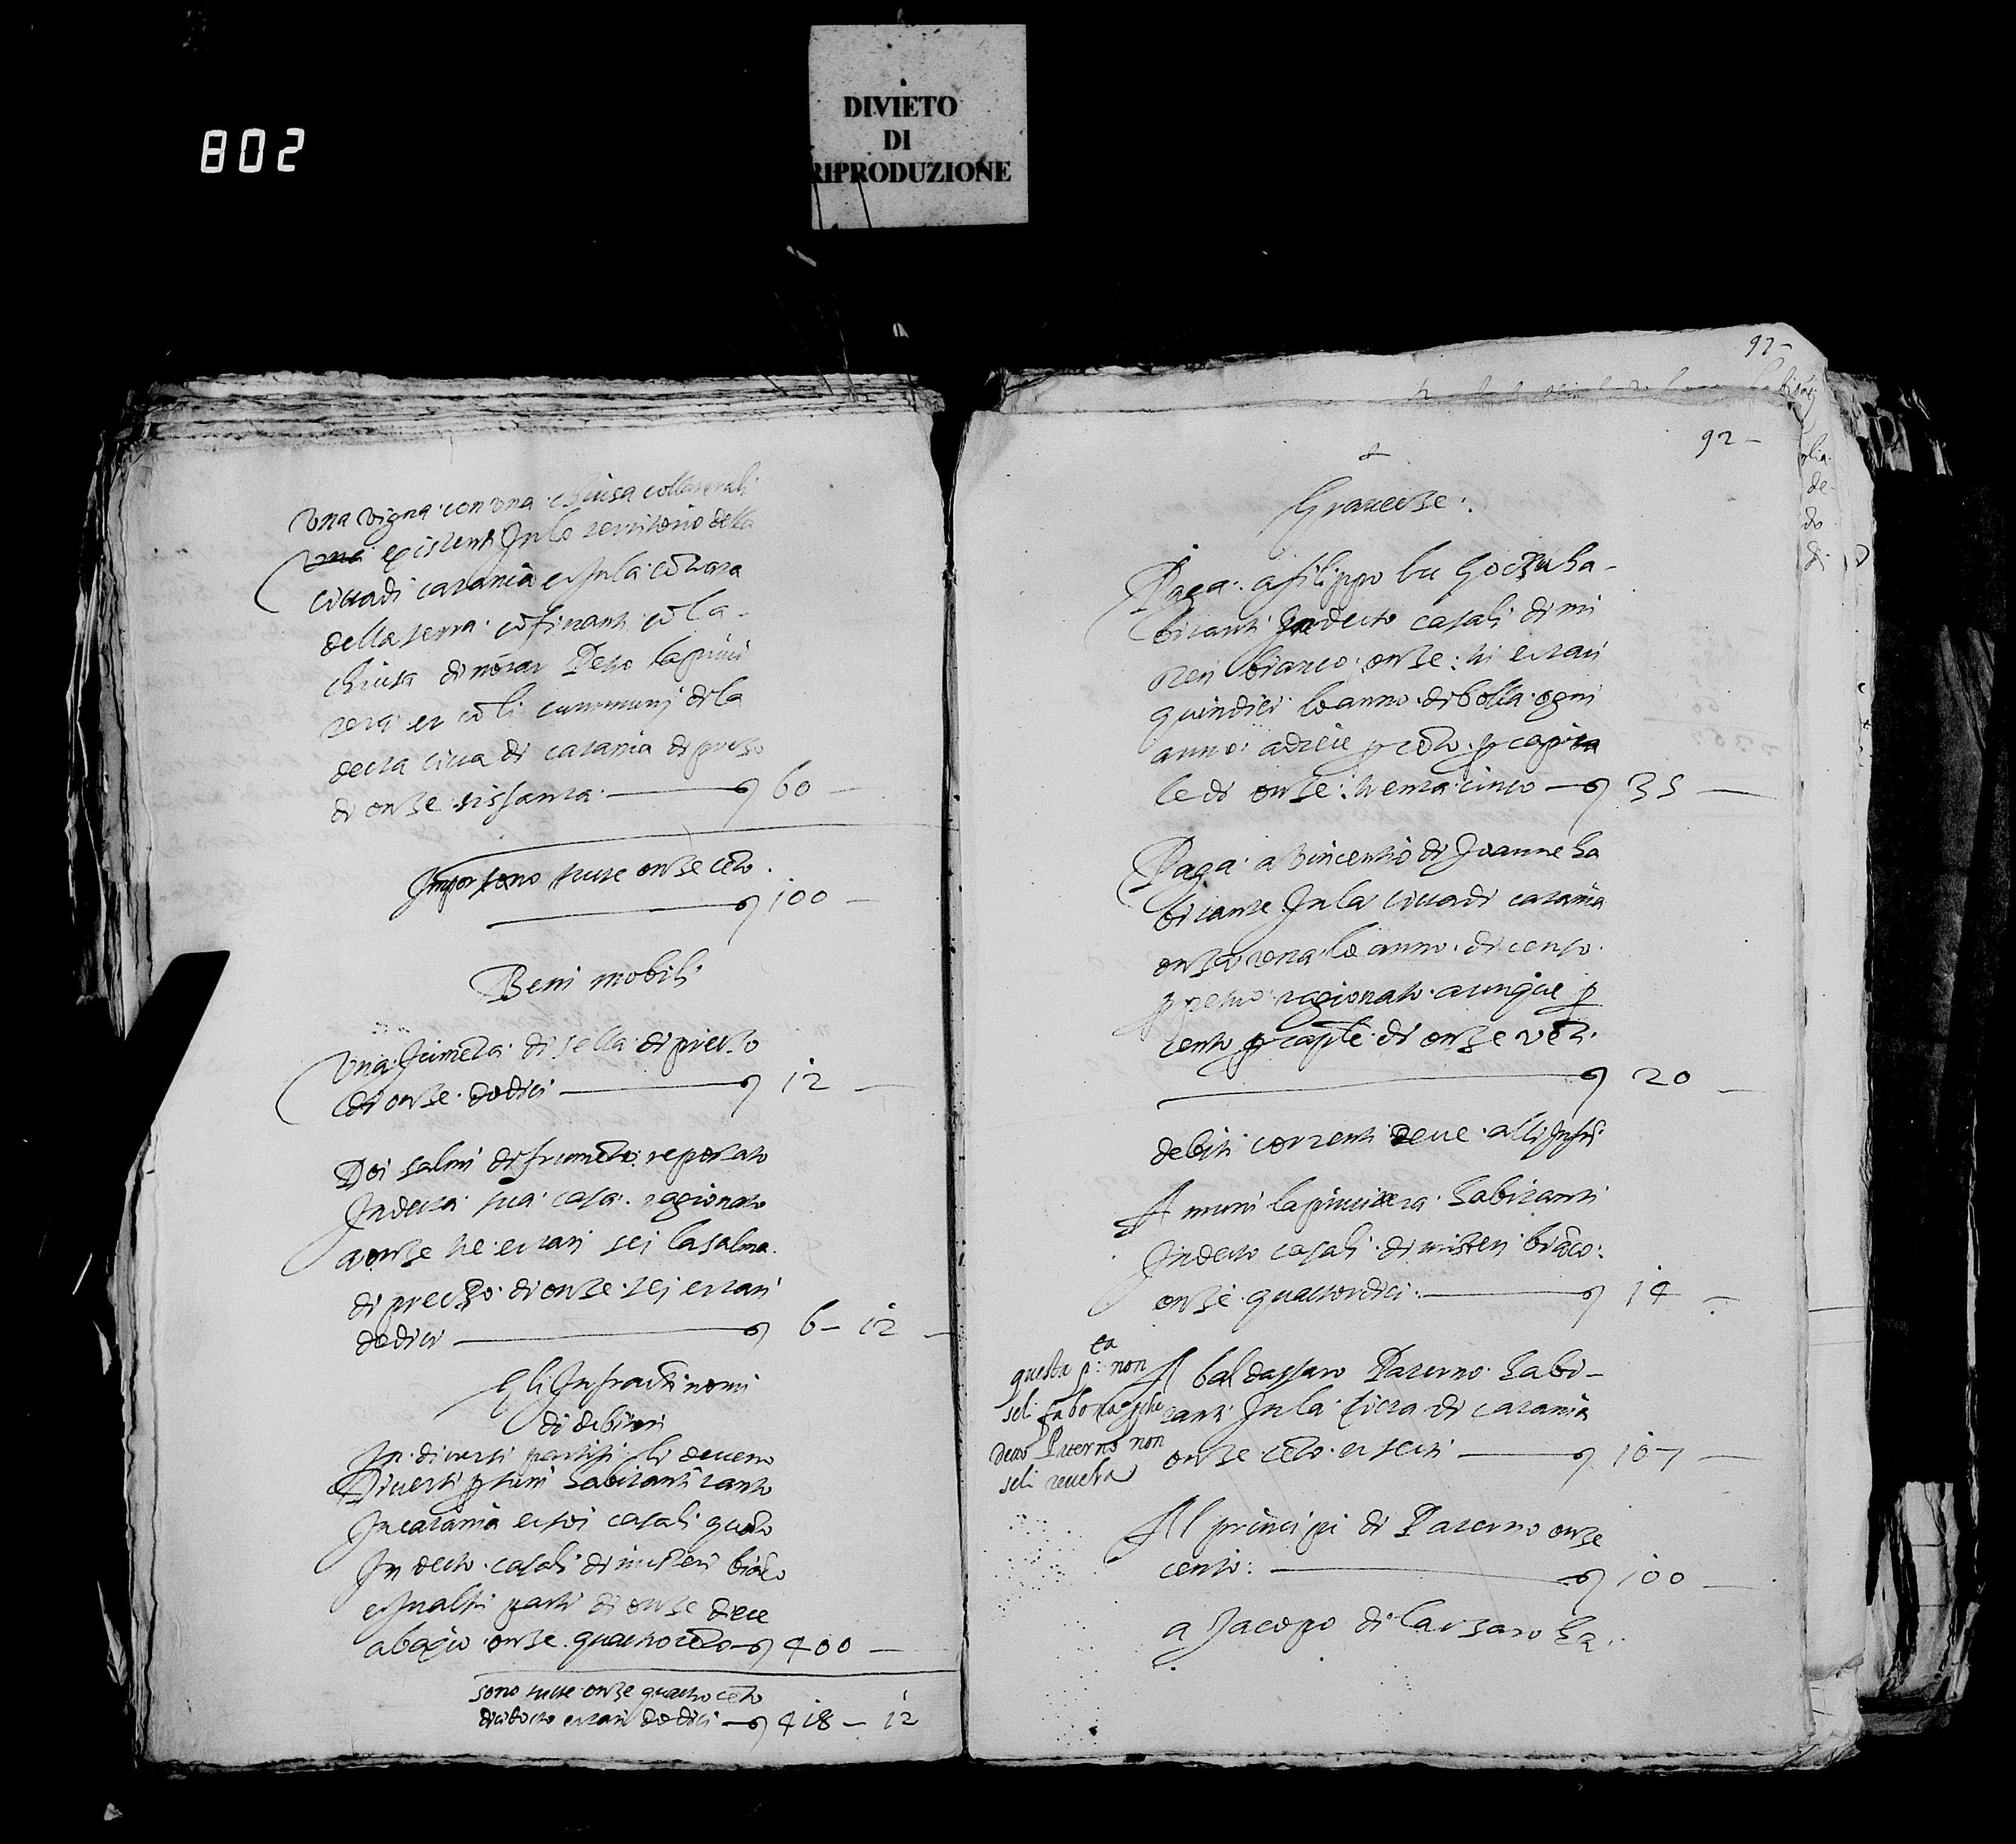 802
DIVIETO
DI
RIPRODUZIONE
una vigna con una chiusa collaterali
existenti In lo territorio della
citta di catania et In la cotrata
della serra cofinanti co la
chiusa di notar Petro la prini
tera et co li cummuni di la
detta citta di catania di prezzo
di onze sissanta 60 —
Importano tutte onze ceto
100 —
Beni mobili
Una Jumeta di sella di prezzo
di onze dodici 12 —
Doi salmi di frumeto repostato
In detta sua casa ragionato
a onze tre et tari sei la salma
di prezzo di onze sei et tari
dodici 6 — 12 —
Gli Infracti nomi
di debitori
In diversi partiti li deveno
Diversi psuni habitanti tanto
In catania et soi casali quato
In detto casali di misteri biaco
et In altri parti di onze diece
abaxio onze quattroceto 400 —
sono tutte onze quattro ceto
dicidocto et tari dodici 418 — 12
92 —
92 —
Graveze:
Paga a filippo lu Gozzu ha-
bitanti In detto casali di mi
steri bianco onze: tri et tari
quindici lo anno di bolla ogni
anno a diece p ceto p capita
le di onze: trenta cinco 35 —
Paga a Vincentio di Joanne ha
bitante In la citta di catania
onza una lo anno di censo
ppetuo ragionato a cinque p
cento p caple di onze veti
20 —
debiti correnti deve alli Infri
A muni la priuitera habitanti
In detto casali di misteri biaco:
onze quattordici 14 —
questa p:ta non
seli fa bona pche
detto Paterno non
seli revela
A baldassaro Paterno habi-
tanti In la citta di catania
onze ceto et setti 107 —
Al principi di Paterno onze
cento: 100 —
a Jacopo di lazzaro ha